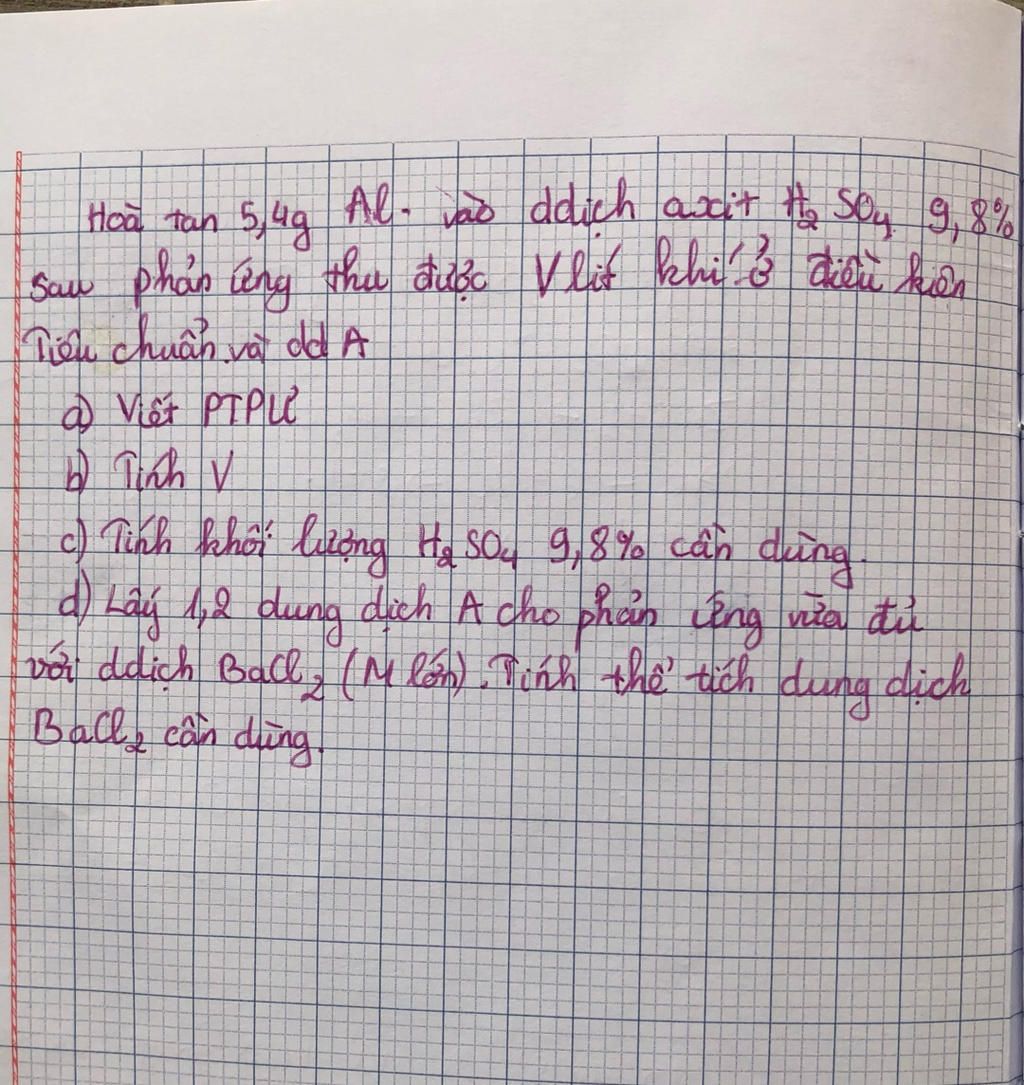 Hoà tan 5,4g Al. vào ddịch axit H₂SO₄ 9,8%
sau phản ứng thu được V lít khí ở điều kiện
Tiêu chuẩn và dd A
a) Viết PTPƯ
b) Tính V
c) Tính khối lượng H₂SO₄ 9,8% cần dùng.
d) Lấy 1,2 dung dịch A cho phản ứng vừa đủ
với ddịch BaCl₂ (M lớn). Tính thể tích dung dịch
BaCl₂ cần dùng.